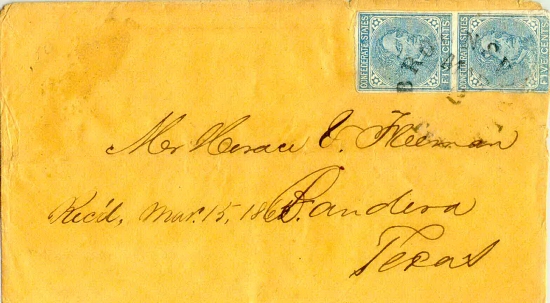 CONFEDERATE STATES FIVE CENTS CONFEDERATE STATES FIVE CENTS
BRO
Mr Horace E. Freeman
Rec'd, Mar. 15, 186 Bandera
Texas